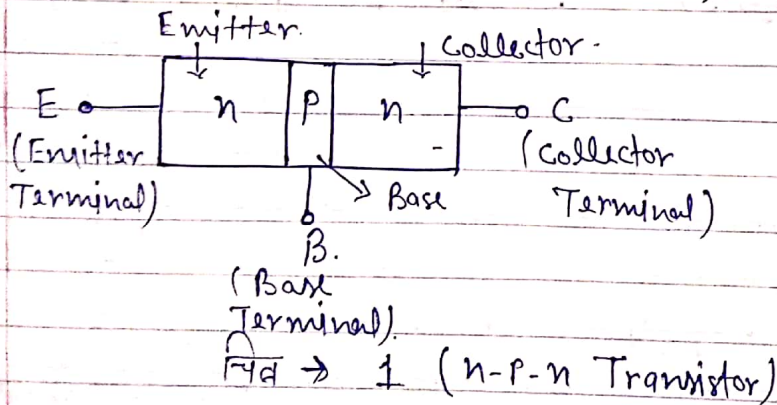 Emitter.
Collector.
E
n
P
n
C
(Emitter
Terminal)
(Collector
Terminal)
Base
B.
(Base
Terminal).
चित्र → 1 (n-p-n Transistor)